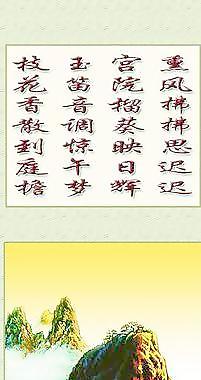 熏风拂拂思迟迟
宫院榴葵映日辉
玉笛音调惊午梦
枝花香散到庭檐